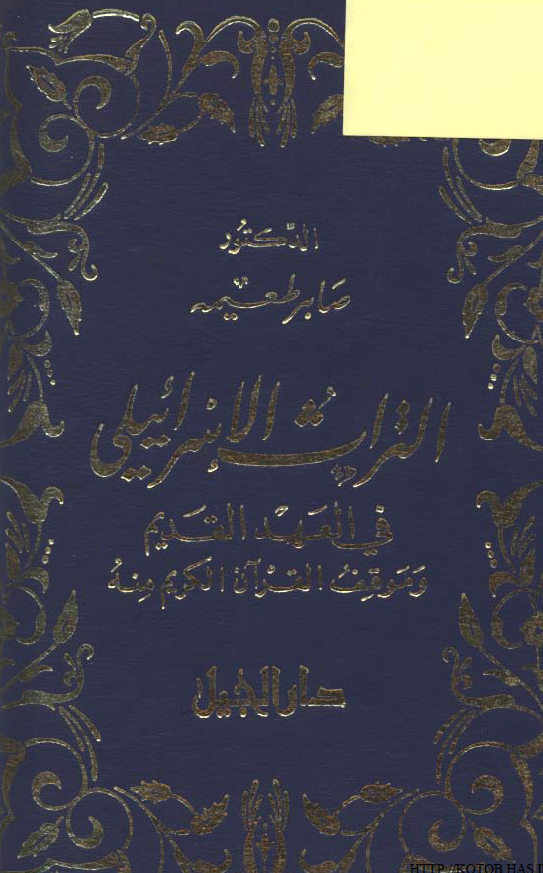 الدكتور
صابر طعيمه
التراث الإسرائيلي
في العهد القديم
وموقف القرآن الكريم منه
دار الجيل
HTTP://KOTOB.HAS.I